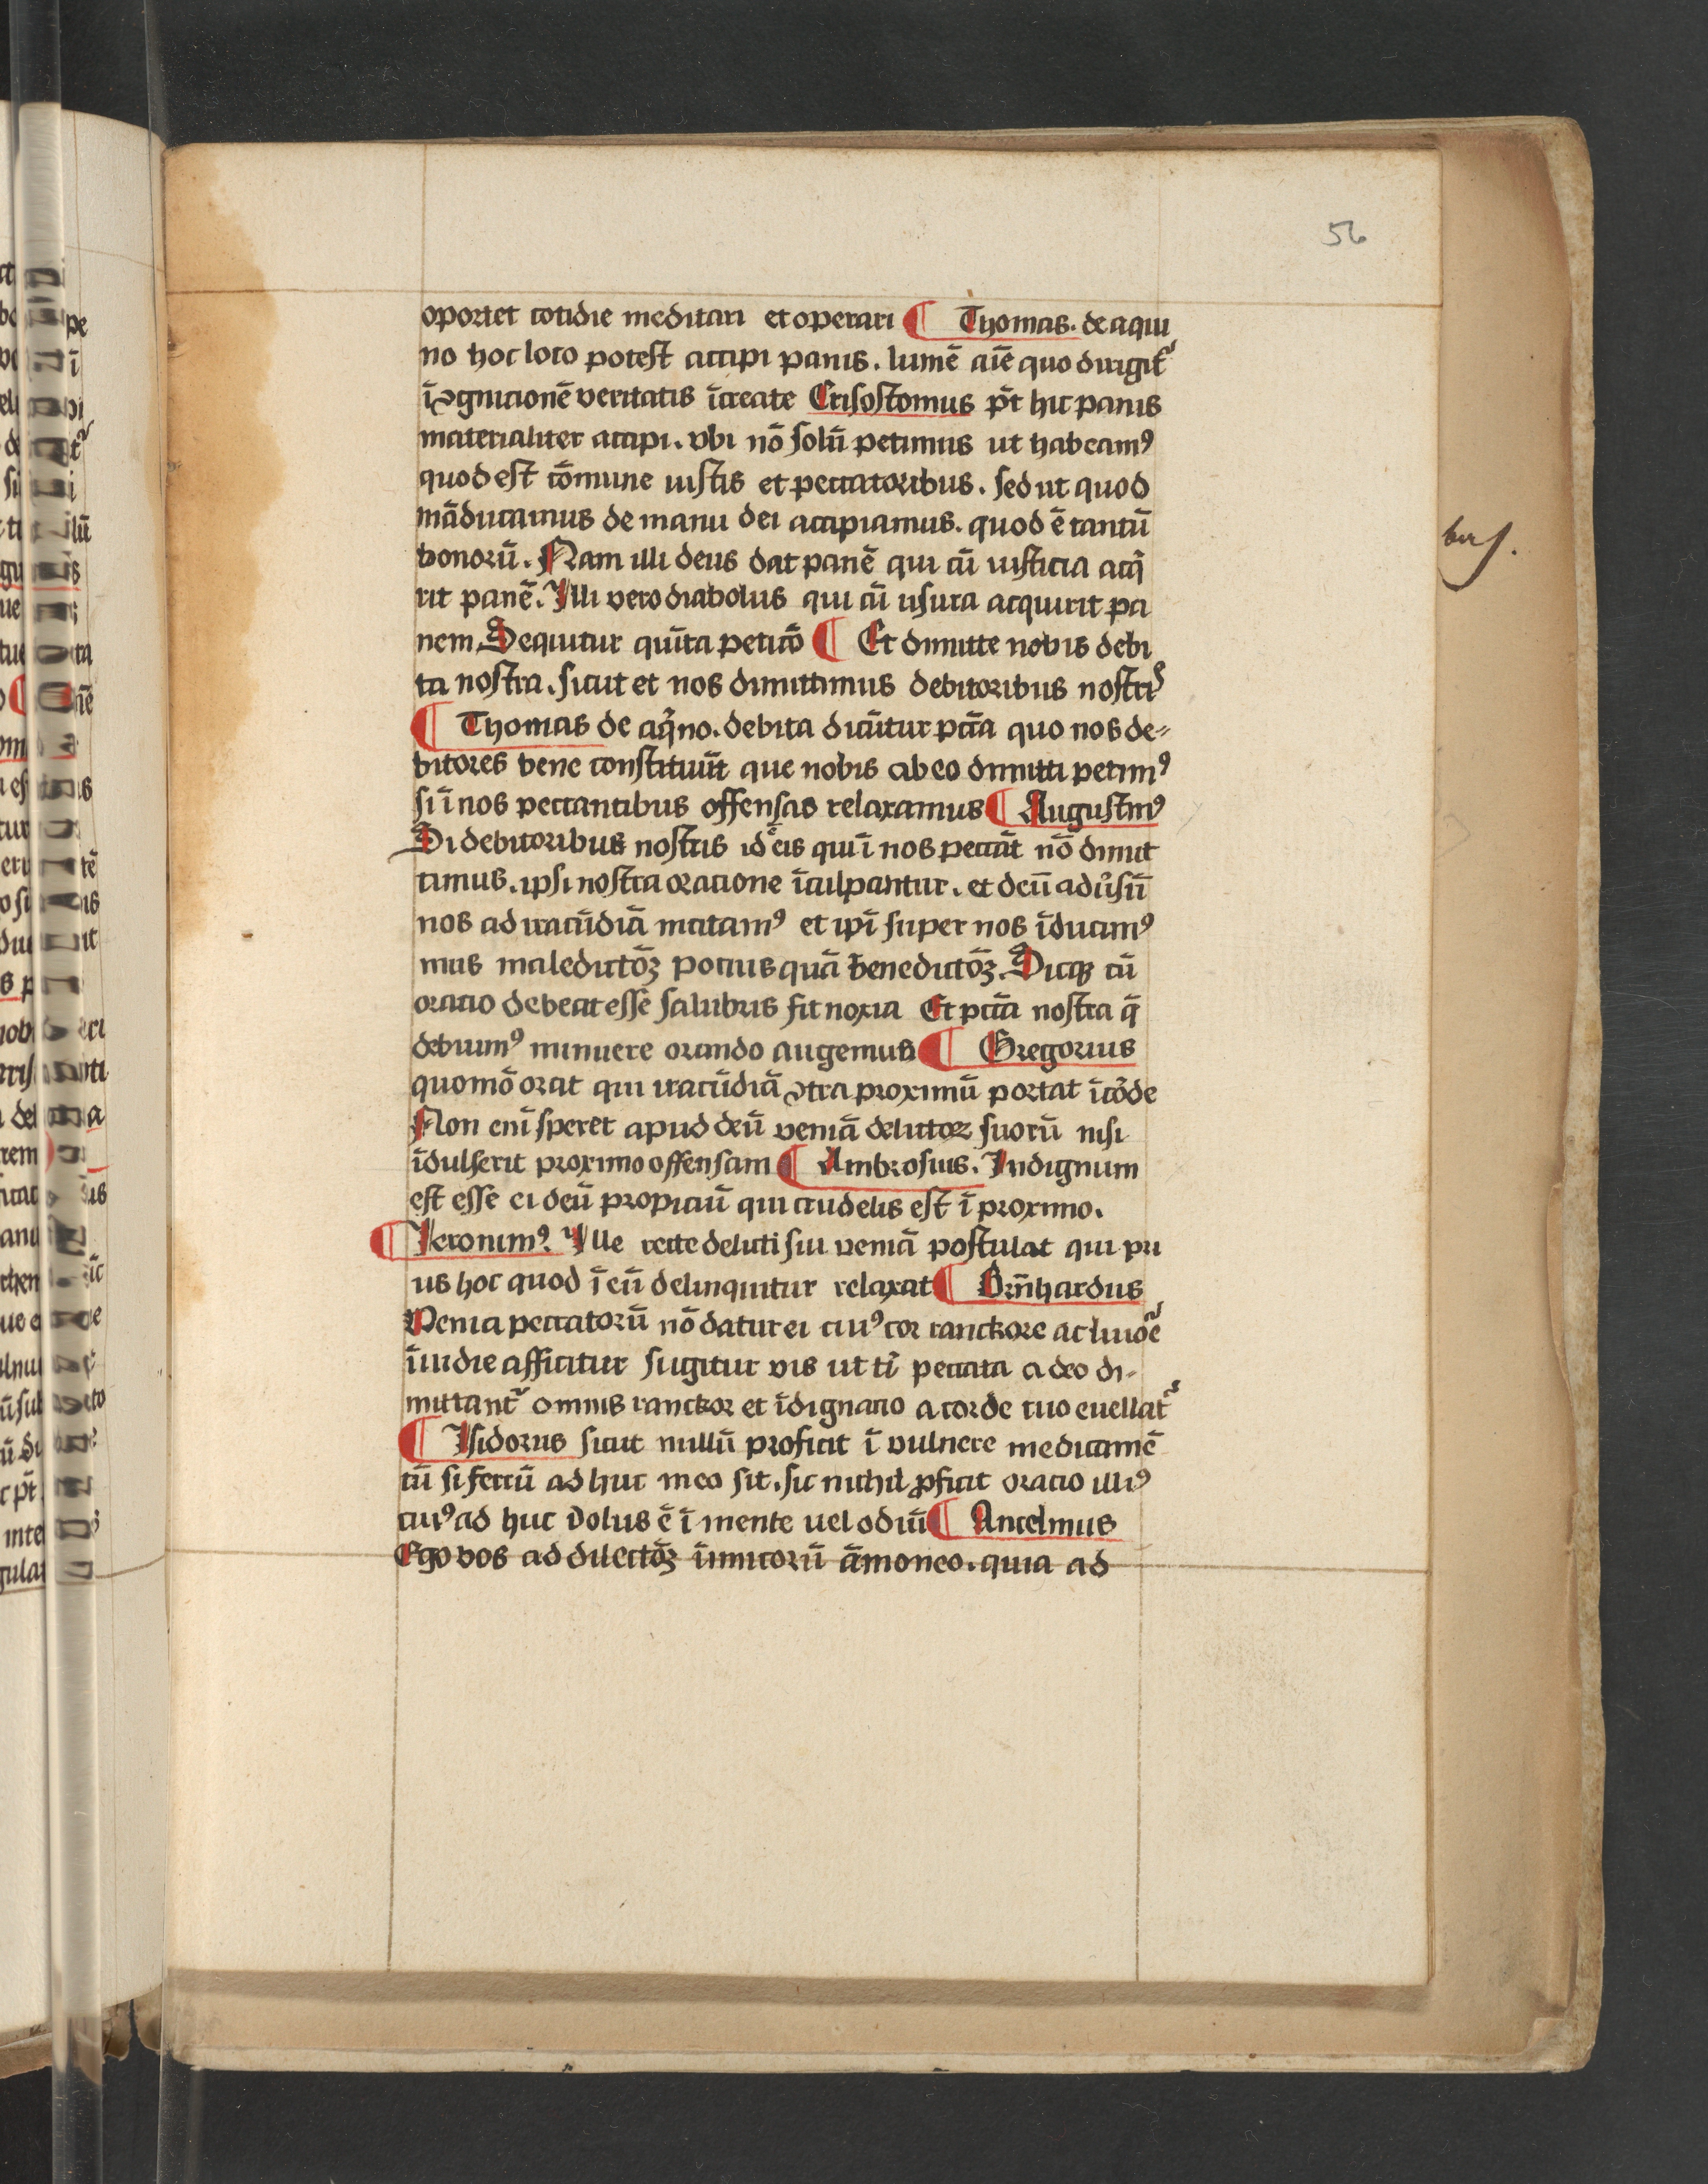 56
oportet cotidie meditari et operari ¶ Thomas. de aqui
no hoc loco potest accipi panis. lumē aīe quo dirigit᷑
ī ꝯgnicionē veritatis īcreate Crisostomus pōt hic panis
materialiter accipi. vbi nō solū petimus ut habeamꝰ
quod est cōmune iustis et peccatoribus. sed ut quod
māducamus de manu dei accipiamus. quod ē tantū
bonorū. Nam illi deus dat panē qui cū iusticia acq̄
rit panē. Illi vero diabolus qui cū usura acquirit pa
nem. Sequitur quīta peticō ¶ Et dimitte nobis debi
ta nostra. sicut et nos dimittimus debitoribus nostris
¶ Thomas de aqͥno. debita dicūtur pcc̄a quo nos de⸗
bitores bene constituūt que nobis ab eo dimitti petimꝰ
si ī nos peccantibus offensas relaxamus ¶ Augustinꝰ
Si debitoribus nostris id ē eis qui ī nos peccāt nō dimit
timus. ipsi nostra oracione īculpantur. et deū adūsū
nos ad iracūdiā incitamꝰ et ip̄i super nos īducimꝰ
mus maledictōꝫ pocius quā benedictōꝫ. Sicqꝫ cū
oracio debeat esse salubris fit noxia Et pcc̄a nostra q̄
debuimꝰ minuere orando augemus ¶ Gregorius
quomō orat qui iracūdiā ꝯtra proximū portat ī cōde
Non eni᷑ speret apud deū veniā delictoꝝ suorū nisi
īdulserit proximo offensam ¶ Ambrosius. Indignum
est esse ei deū propiciū qui crudelis est ī proximo.
¶ Ieronimꝰ. Ille recte delicti sui veniā postulat qui pri
us hoc quod ī eū delinquitur relaxat ¶ Brn̄hardus
Venia peccatorū nō datur ei cuiꝰ cor ranckore ac liuōē
īuidie afficitur Igitur vis ut ti᷑ peccata a deo di-
mittant᷑ omnis ranckor et īdignacio a corde tuo euellat᷑
¶ Isidorus sicut nullū proficit ī vulnere medicamē
tū si ferrū ad huc in eo sit. sic nichil ꝓficit oracio illiꝰ
cuiꝰ ad huc dolus ē ī mente uel odiū ¶ Ancelmus
Ego vos ad dilectōꝫ īimicorū āmoneo. quia ad